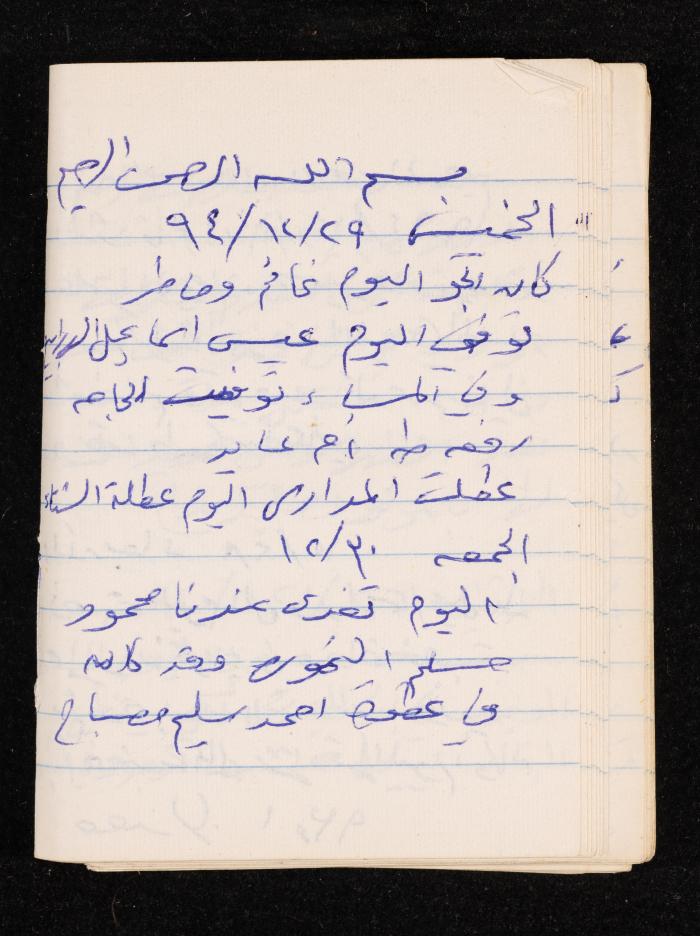 بسم الله الرحمن الرحيم
الخميس ٩٤/١٢/٢٩
كان الجو اليوم غائم وماطر
توفي اليوم عيسى اسماعيل
وفي المساء توفيت الحاجه
رفقه طه أم عايد
عطلت المدارس اليوم عطلة الشتاء
الجمعه ١٢/٣٠
اليوم تغدى عندنا محمود
مسلم النموره وقد كان
في عطوة احمد سليم مصباح